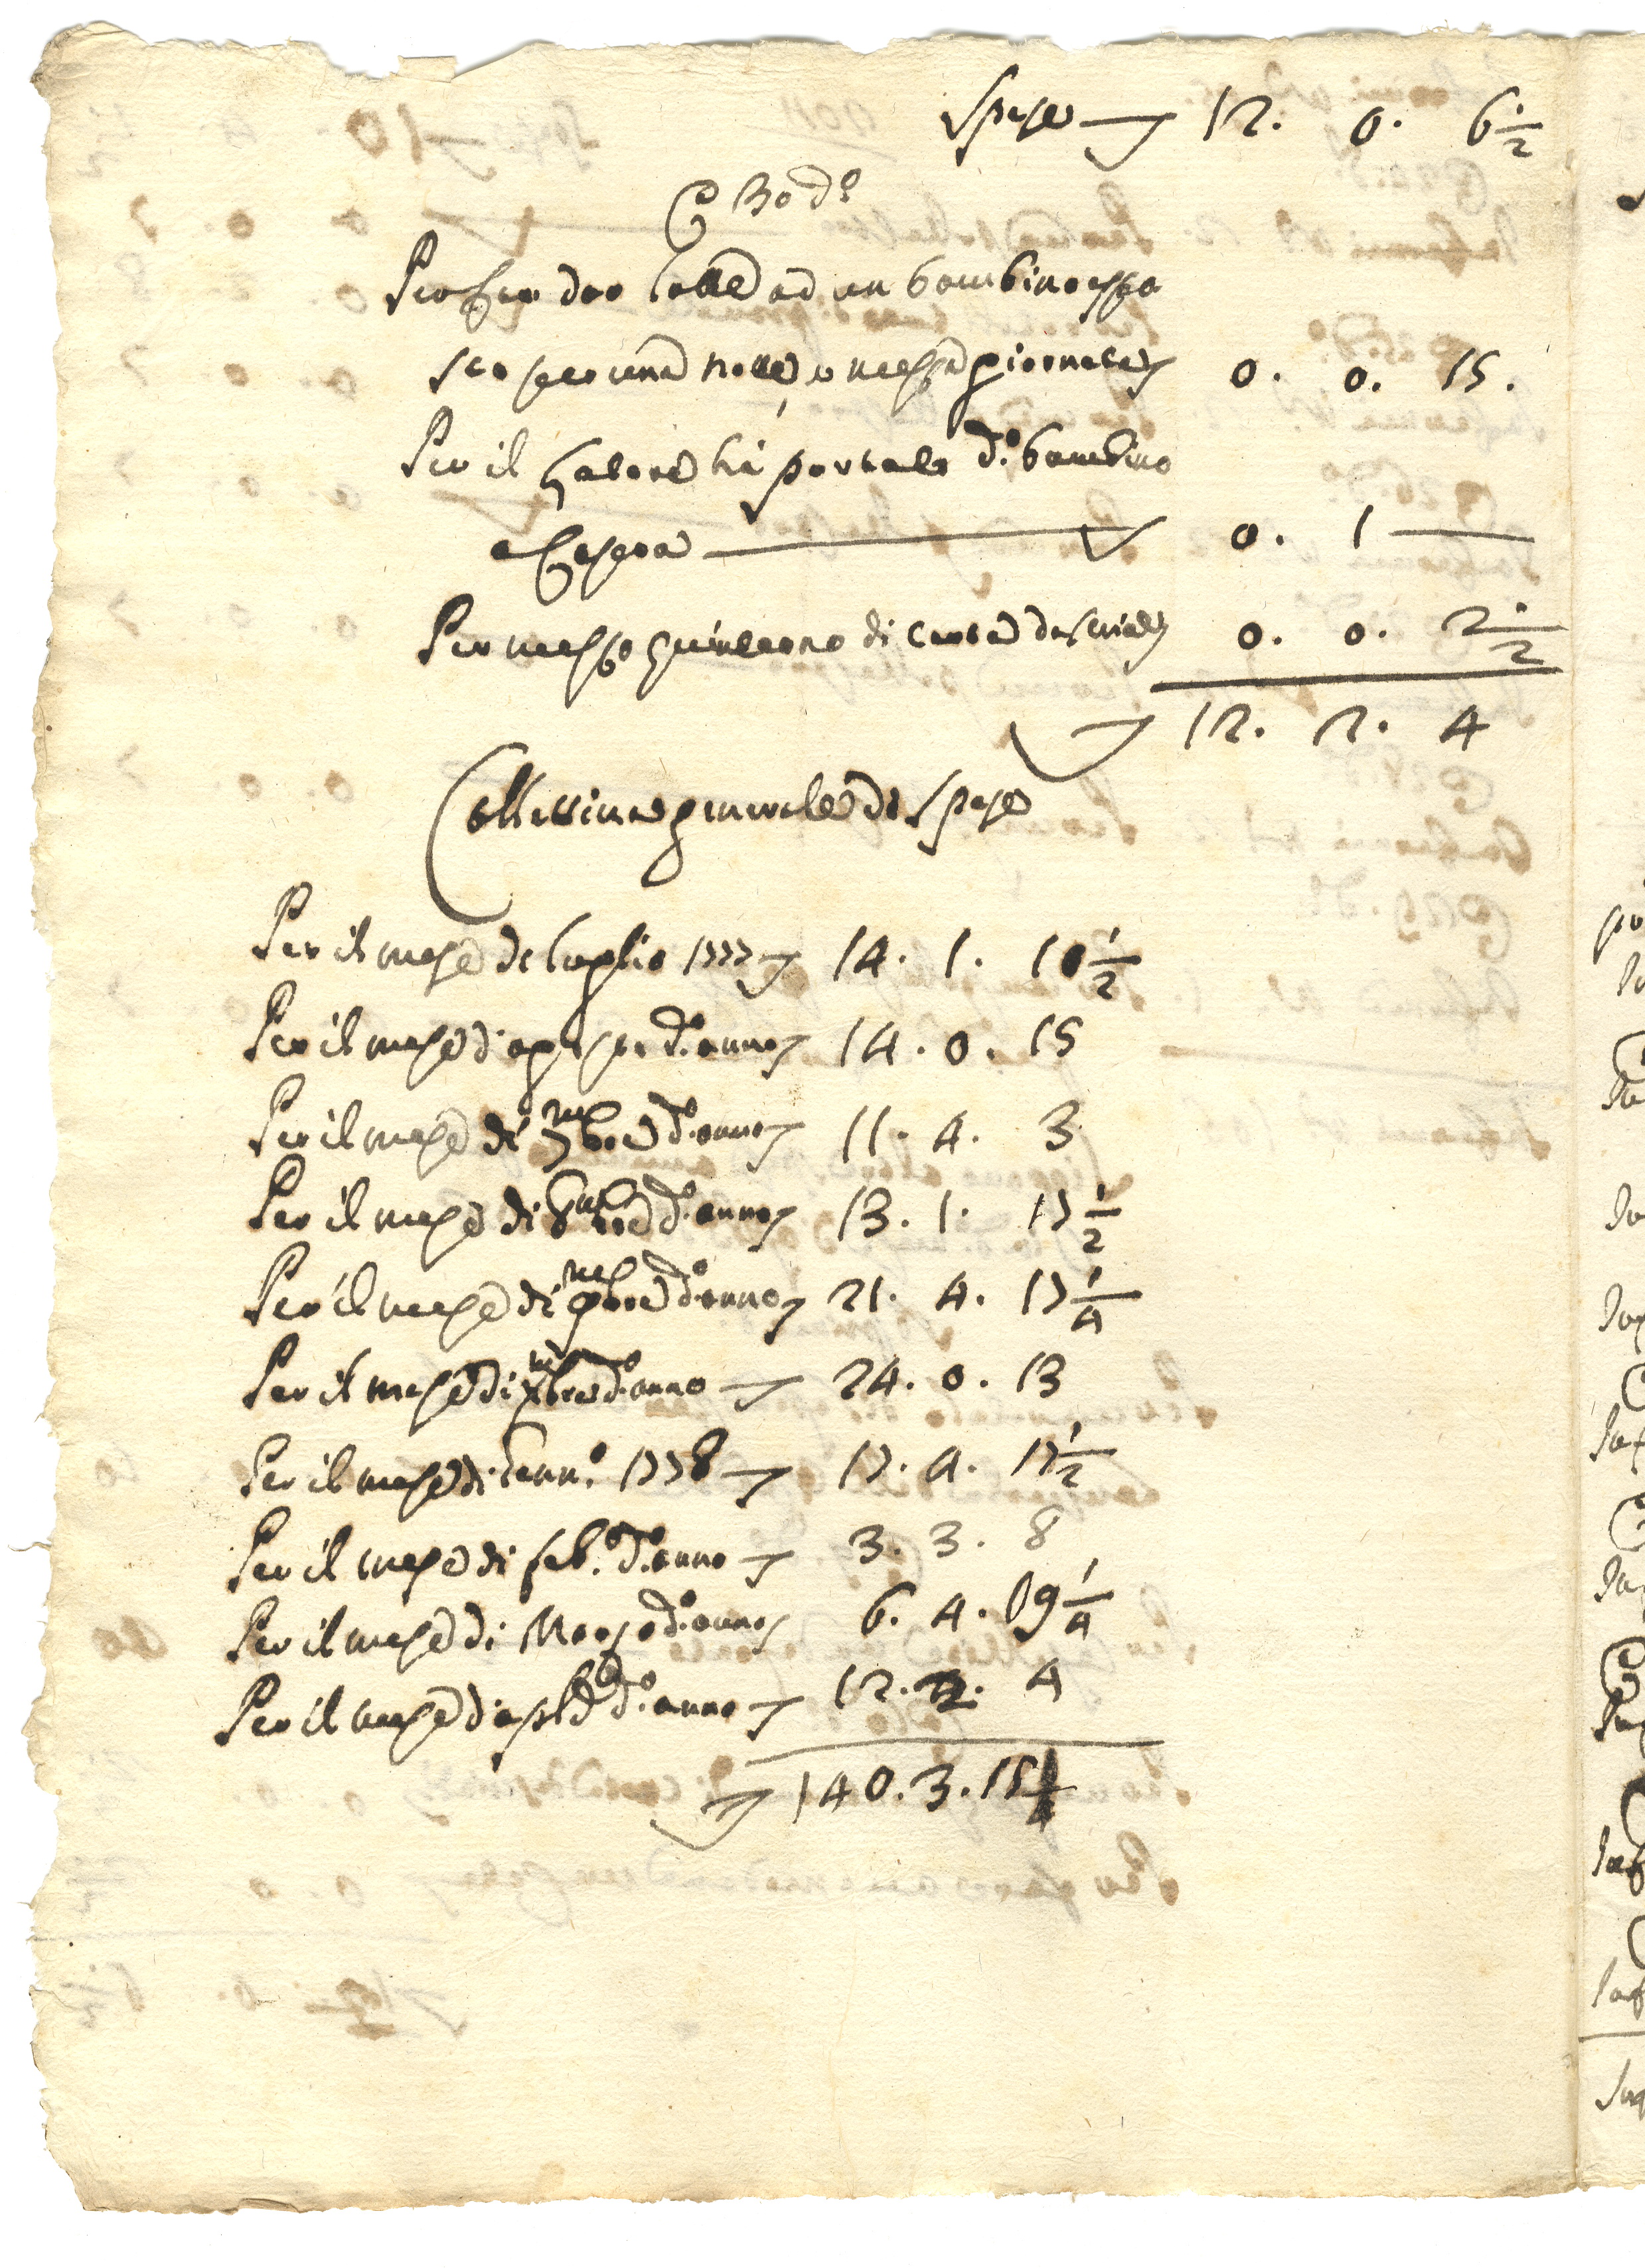 Spese 12. 0. 6 1/2
30 d.o
Per far dar latte ad un bambino espo
sto per una notte, e mezza giornata 0. 0. 15.
Per il latore hà portato d.o bambino
a Pesaro 0. 1
Per mezzo quinterno di carta da scrivere 0. 0. 2 1/2
12. 2. 4
Collettiva generale di Spese
Per il mese di luglio 1777 14. 1. 10 1/2
Per il mese d'agosto d.o anno 14. 0. 15
Per il mese di 7mbre d.o anno 11. 4. 3
Per il mese di 8mbre d.o anno 13. 1. 17 1/2
Per il mese di 9mbre d.o anno 21. 4. 17 1/4
Per il mese di Xmbre d.o anno 24. 0. 13
Per il mese di Genn.o 1778 17. 4. 17 1/2
Per il mese di feb.o d.o anno 3. 3. 8
Per il mese di Marzo d.o anno 6. 4. 09 1/4
Per il mese d'aple d.o anno 12. 2. 4
140. 3. 15